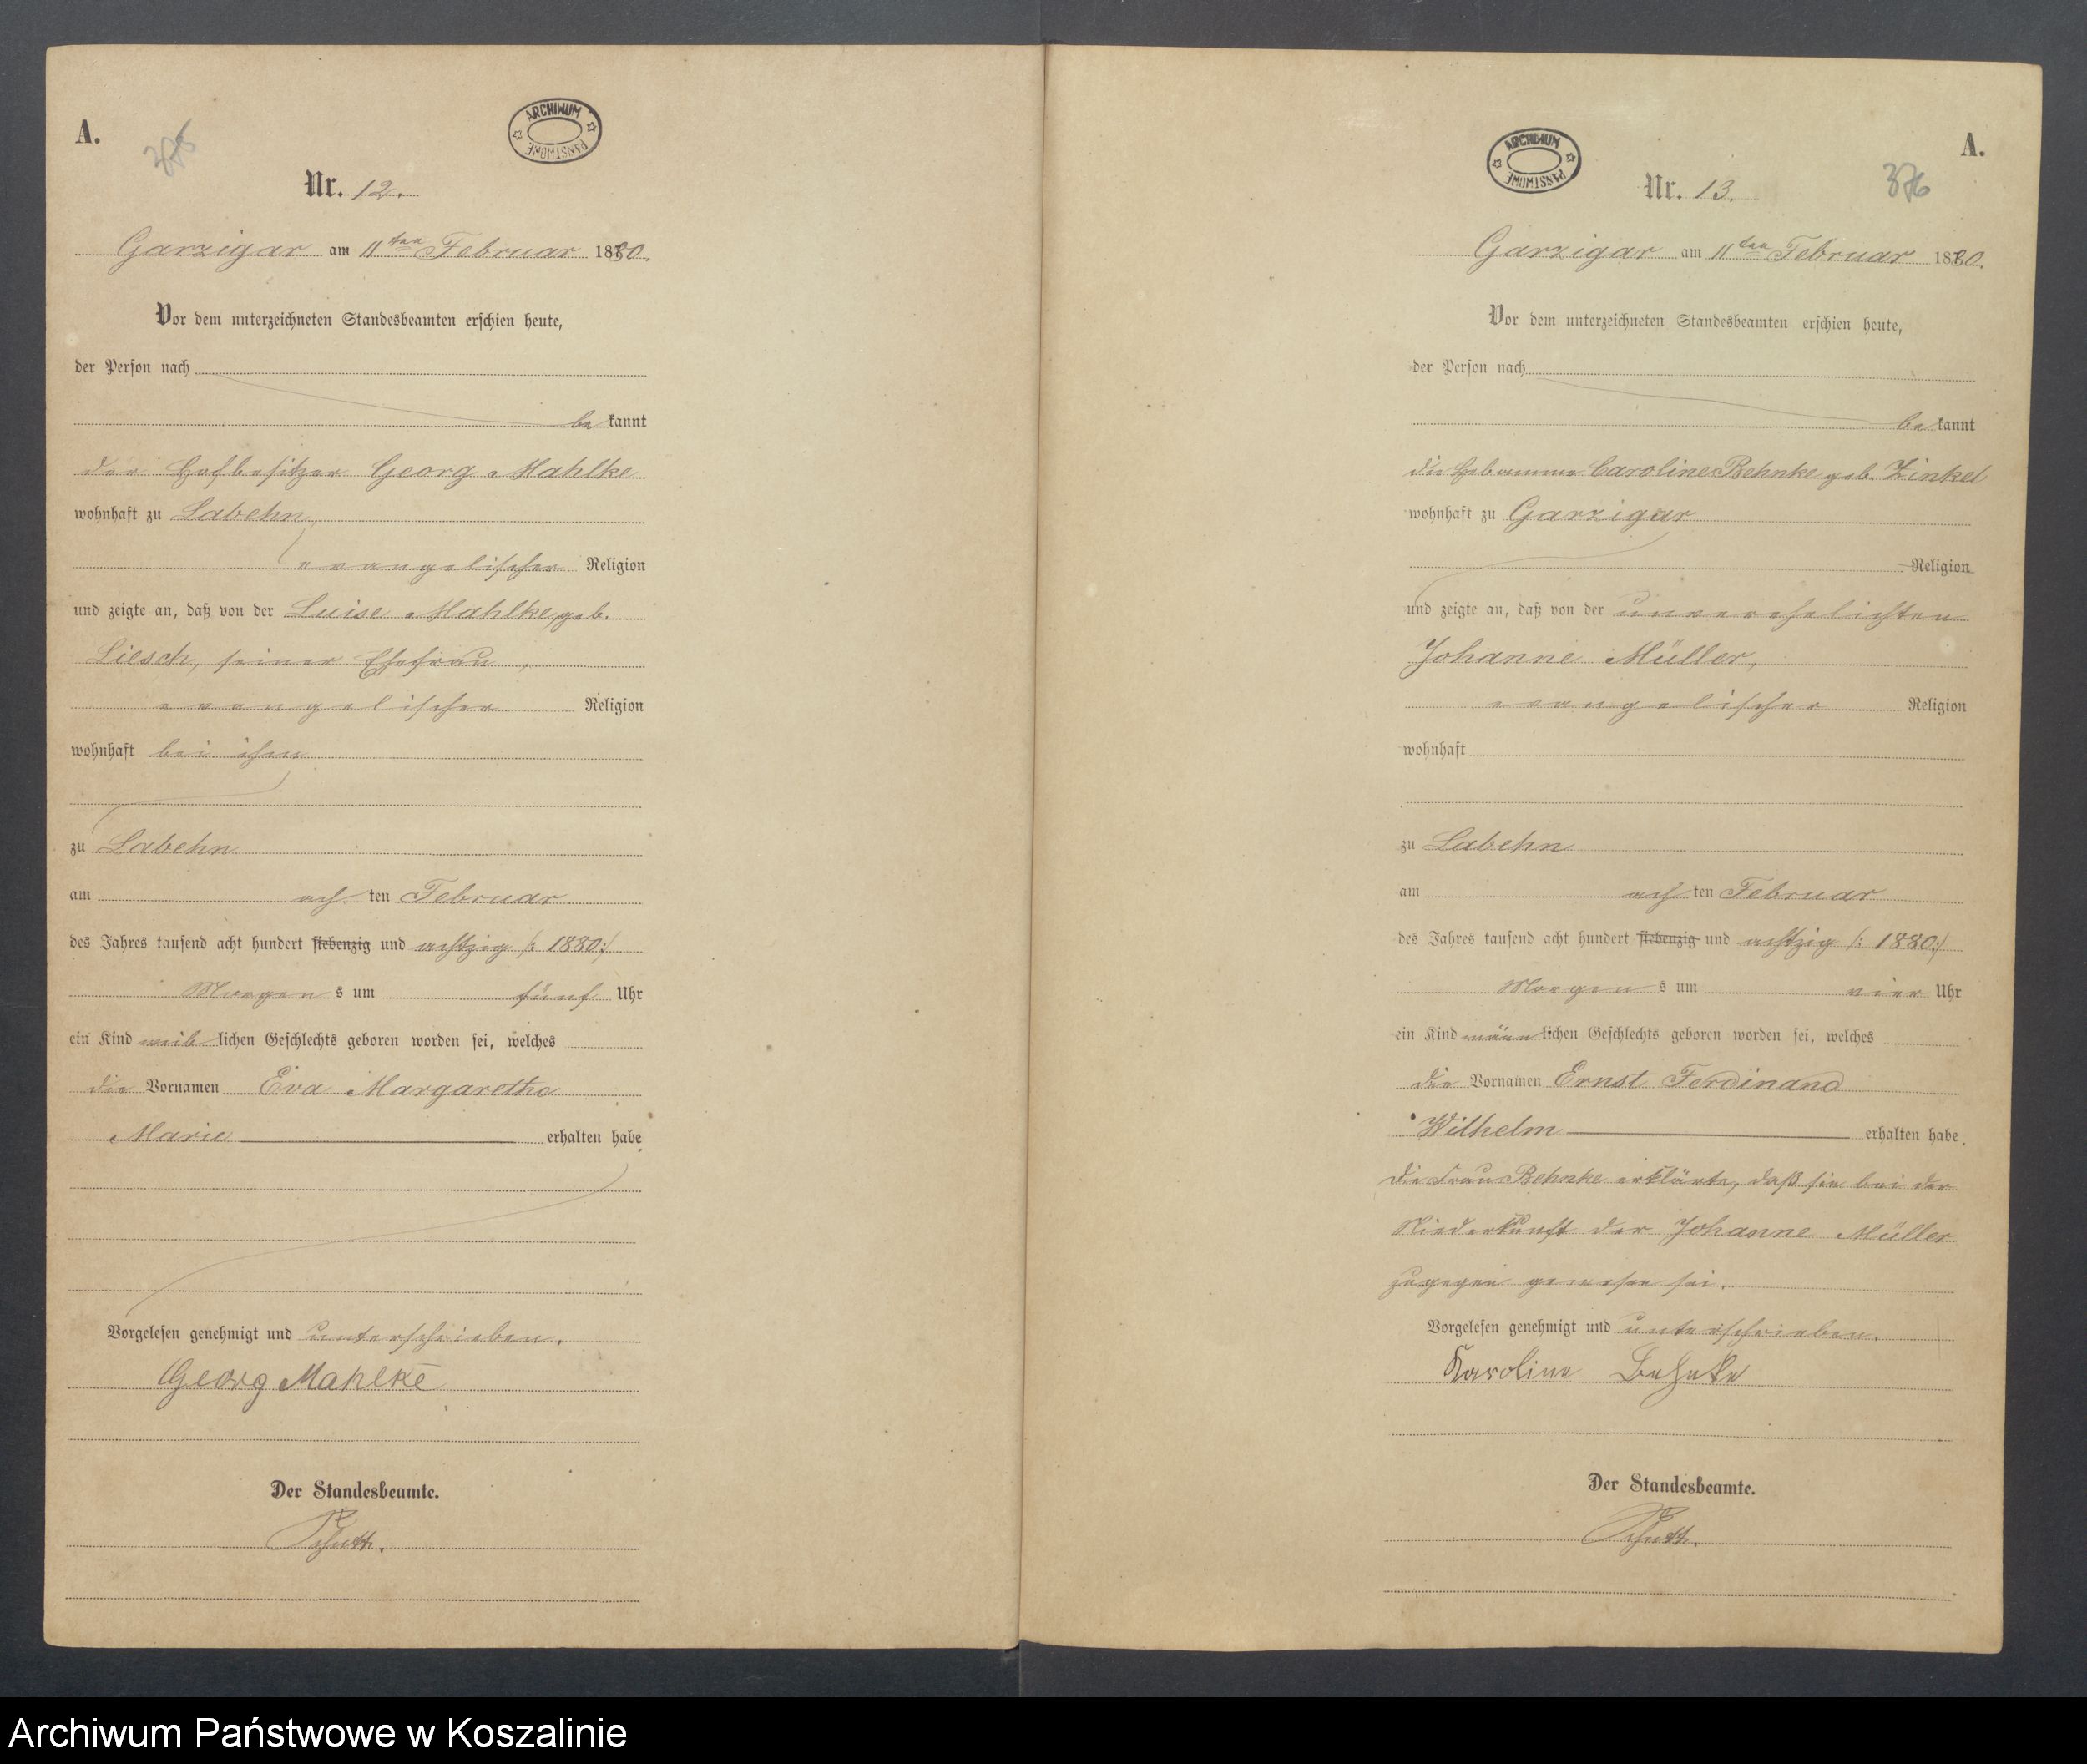 A.
375
ARCHIWUM PAŃSTWOWE
Nr. 12.
Garzigar am 11ten Februar 1880.
Vor dem unterzeichneten Standesbeamten erschien heute,
der Person nach
be kannt
der Hofbesitzer Georg Mahlke
wohnhaft zu Labehn,
evangelischer Religion
und zeigte an, daß von der Luise Mahlke, geb.
Liesch, seiner Ehefrau,
evangelischer Religion
wohnhaft bei ihm
zu Labehn
am ach ten Februar
des Jahres tausend acht hundert siebenzig und achtzig /: 1880 :/
Morgen s um fünf Uhr
ein Kind weib lichen Geschlechts geboren worden sei, welches
die Vornamen Eva Margarethe
Marie erhalten habe.
Vorgelesen genehmigt und unterschrieben.
Georg Mahlke
Der Standesbeamte.
A.
376
ARCHIWUM PAŃSTWOWE
Nr. 13.
Garzigar am 11ten Februar 1880.
Vor dem unterzeichneten Standesbeamten erschien heute,
der Person nach
be kannt
die Hebamme Caroline Behnke geb. Zinkel
wohnhaft zu Garzigar
Religion
und zeigte an, daß von der unverehelichten
Johanne Müller,
evangelischer Religion
wohnhaft
zu Labehn
am ach ten Februar
des Jahres tausend acht hundert siebenzig und achtzig /: 1880 :/
Morgen s um vier Uhr
ein Kind männ lichen Geschlechts geboren worden sei, welches
die Vornamen Ernst Ferdinand
Wilhelm erhalten habe.
Die Frau Behnke erklärte, daß sie bei der
Niederkunft der Johanne Müller
zugegen gewesen sei.
Vorgelesen genehmigt und unterschrieben.
Karoline Behnke
Der Standesbeamte.
Archiwum Państwowe w Koszalinie